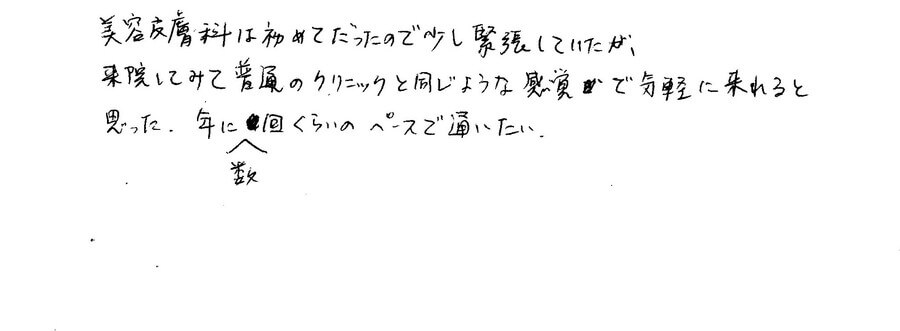 美容皮膚科は初めてだったので少し緊張していたが、
来院してみて普通のクリニックと同じような感覚で気軽に来れると
思った。年に数回くらいのペースで通いたい。